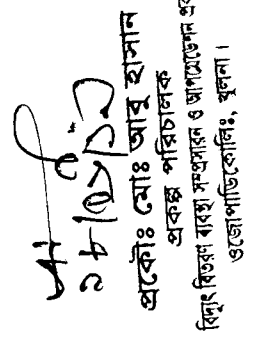 প্রকৌঃ মোঃ আবু হাসান
প্রকল্প পরিচালক
বিদ্যুৎ বিতরণ ব্যবস্থা সম্প্রসারন ও আপগ্রেডেশন প্রক
ওজোপাডিকোলিঃ, খুলনা।